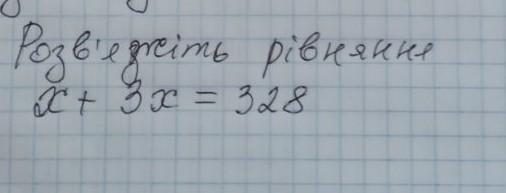 Розв'яжіть рівняння
x + 3x = 328